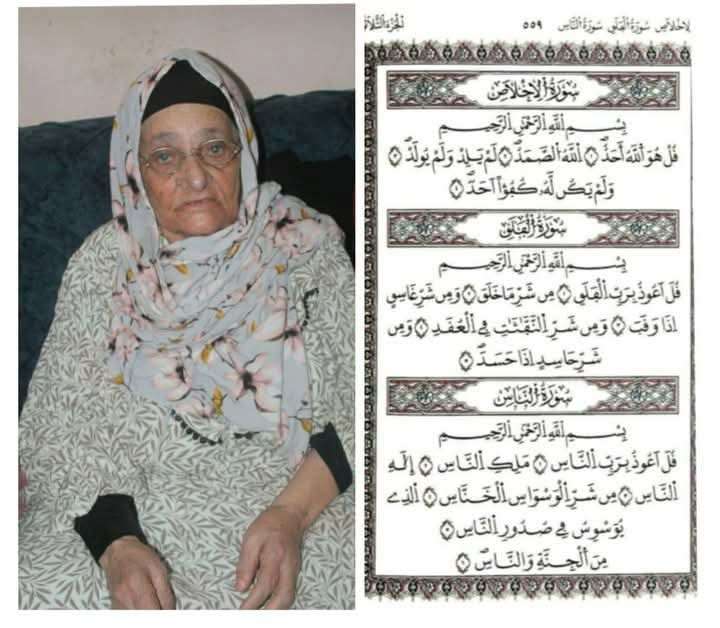 لِاخْلَاصِ سُورَةُ اُلْفَلَقِ سُورَةُ اُلنَّاسِ ٥٥٩
سُورَةُ اُلِاخْلَاصِ
بِسْمِ اِللَّهِ اِلرَّحْمَٰنِ اِلرَّحِيمِ
قُلْ هُوَ اَللَّهُ أَحَدٌ ۝ اَللَّهُ اُلصَّمَدُ ۝ لَمْ يَلِدْ وَلَمْ يُولَدْ ۝
وَلَمْ يَكُن لَّهُۥ كُفُؤاً اَحَدٌ ۝
سُورَةُ اُلْفَلَقِ
بِسْمِ اِللَّهِ اِلرَّحْمَٰنِ اِلرَّحِيمِ
قُلَ اَعُوذُ بِرَبِّ اِلْفَلَقِ ۝ مِن شَرِّ مَا خَلَقَ ۝ وَمِن شَرِّ غَاسِقٍ
اِذَا وَقَبَ ۝ وَمِن شَرِّ اِلنَّفَّٰثَٰتِ فِي اِلْعُقَدِ ۝ وَمِن
شَرِّ حَاسِدٍ اِذَا حَسَدَ ۝
سُورَةُ اُلنَّاسِ
بِسْمِ اِللَّهِ اِلرَّحْمَٰنِ اِلرَّحِيمِ
قُلَ اَعُوذُ بِرَبِّ اِلنَّاسِ ۝ مَلِكِ اِلنَّاسِ ۝ إِلَٰهِ
اِلنَّاسِ ۝ مِن شَرِّ اِلْوَسْوَاسِ اِلْخَنَّاسِ ۝ اِلَذِے
يُوَسْوِسُ فِي صُدُورِ اِلنَّاسِ ۝
مِنَ اَلْجِنَّةِ وَالنَّاسِ ۝